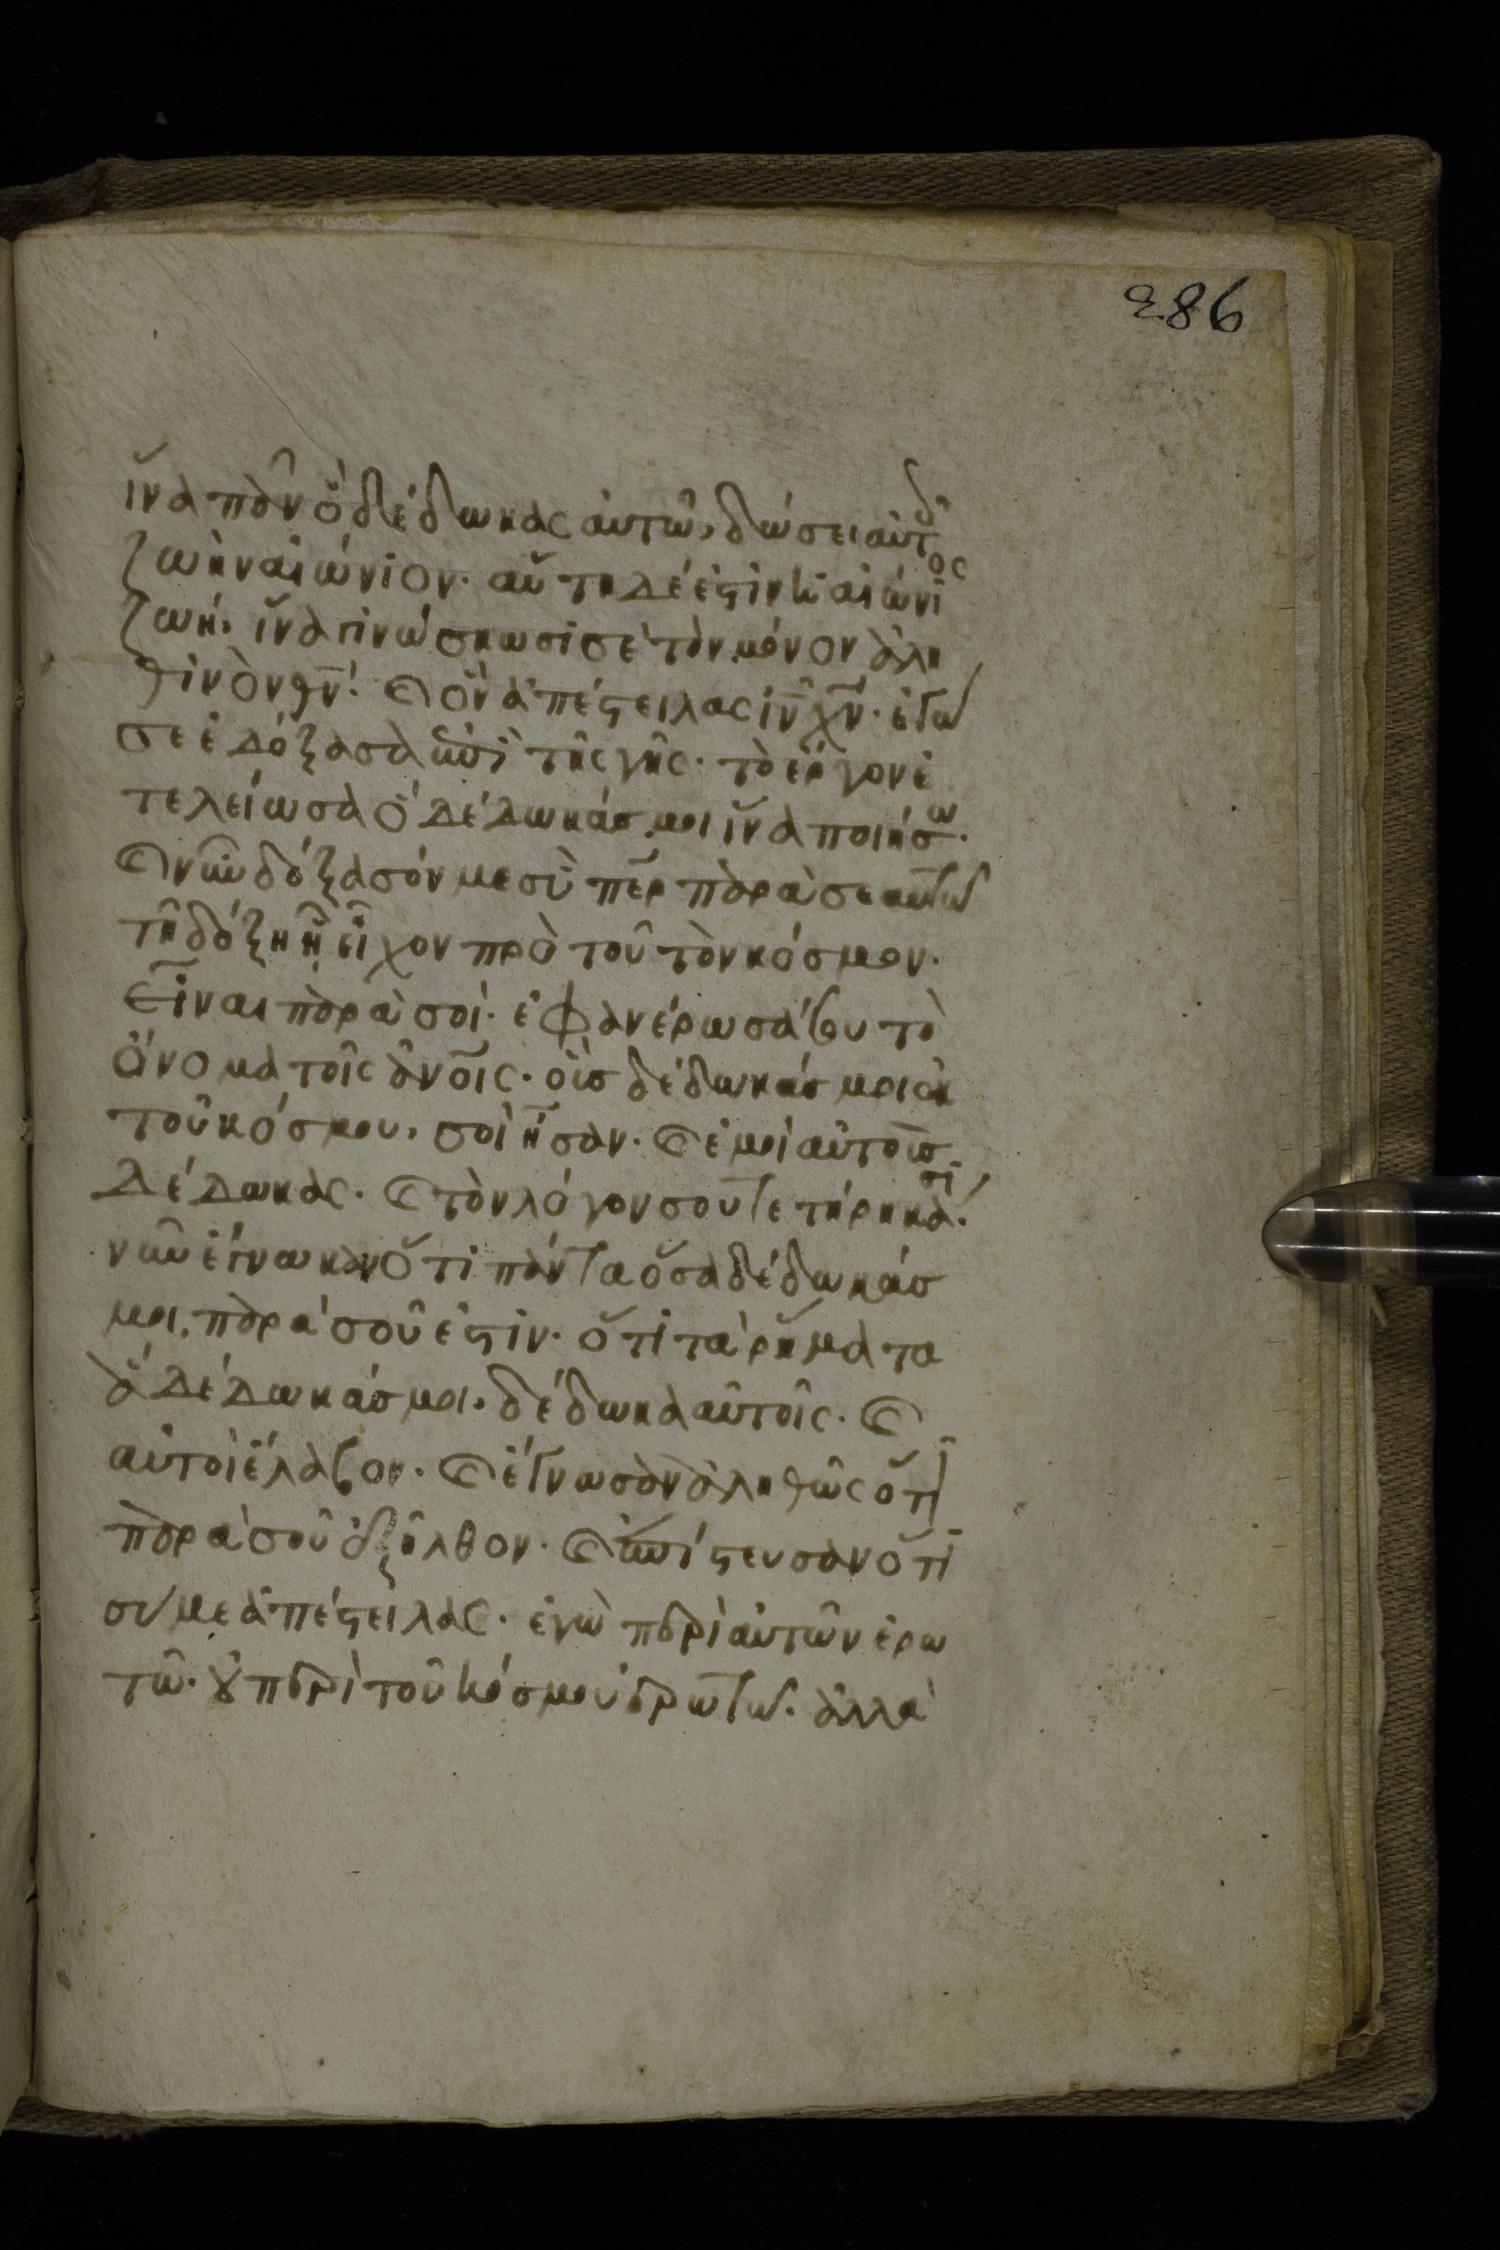 286
ἵνα πᾶν ὃ δέδωκας αὐτῶ, δώσει αὐτοῖς
ζωὴν αἰώνιον· αὕτη δέ ἐστιν ἡ αἰώνιος
ζωή, ἵνα γινώσκωσί σε τὸν μόνον ἀλη
θινὸν θν· καὶ ὃν ἀπέστειλας ιν χν· ἐγώ
σε ἐδόξασα ἐπὶ τῆς γῆς· τὸ ἔργον ἐ
τελείωσα ὃ δέδωκάσ μοι ἵνα ποιήσω·
καὶ νῦν δόξασόν με σὺ περ παρὰ σεαυτῶ
τῆ δόξη ἧ εἶχον πρὸ τοῦ τὸν κόσμον·
εἶναι παρὰ σοί· ἐφανέρωσά σου τὸ
ὄνομα τοῖς ἀνοις· οὓσ δέδωκάσ μοι ἐκ
τοῦ κόσμου, σοὶ ἦσαν· καὶ ἐμοὶ αὐτοὺσ
δέδωκας· καὶ τὸν λόγον σου τετήρηκασι·
νῦν ἔγνωκαν ὅτι πάντα ὅσα δέδωκάσ
μοι, παρὰ σοῦ ἐστιν· ὅτι τὰ ῥήματα
ἃ δέδωκάσ μοι, δέδωκα αὐτοῖς· καὶ
αὐτοὶ ἔλαβον· καὶ ἔγνωσαν ἀληθῶς ὅτι
παρὰ σοῦ ἐξῆλθον· καὶ ἐπίστευσαν ὅτι
σύ με ἀπέστειλας· ἐγὼ περὶ αὐτῶν ἐρω
τῶ· οὐ περὶ τοῦ κόσμου ἐρωτῶ· ἀλλὰ